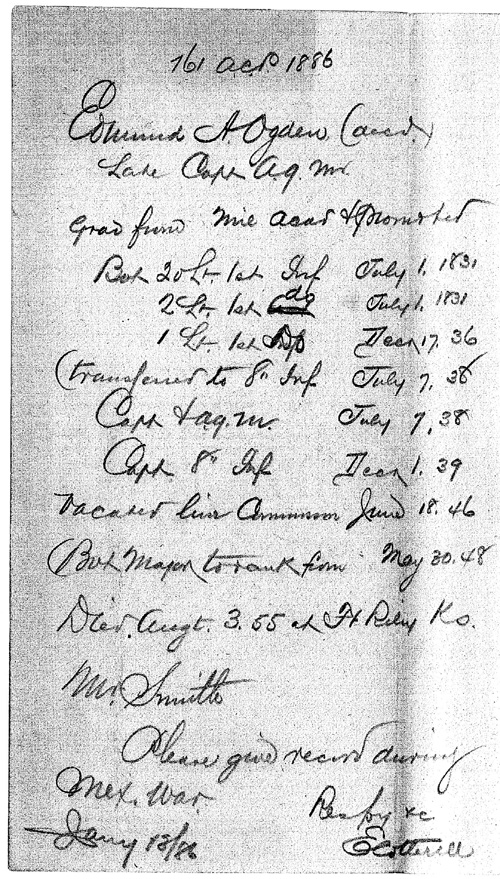 761 ACP 1886
Edmund A. Ogden (decd.)
Late Capt A.Q.M.
Grad from Mil Acad & Promoted
Bvt 2d Lt. 1st Inf July 1. 1831
2 Lt. 1st do July 1. 1831
1 Lt. 1st Inf Decr 17. 36
(transferred to 8" Inf July 7, 38
Capt & a.q.m. July 7, 38
Capt 8" Inf Decr 1. 39
Vacated line Commission June 18. 46
(Bvt Major to rank from May 30. 48
Died. Augt. 3. 55 at Ft Riley Ks.
Mr. Smith
Please give record during
Mex. War.
Resfy &c
Jany 13/86
E Cotterell